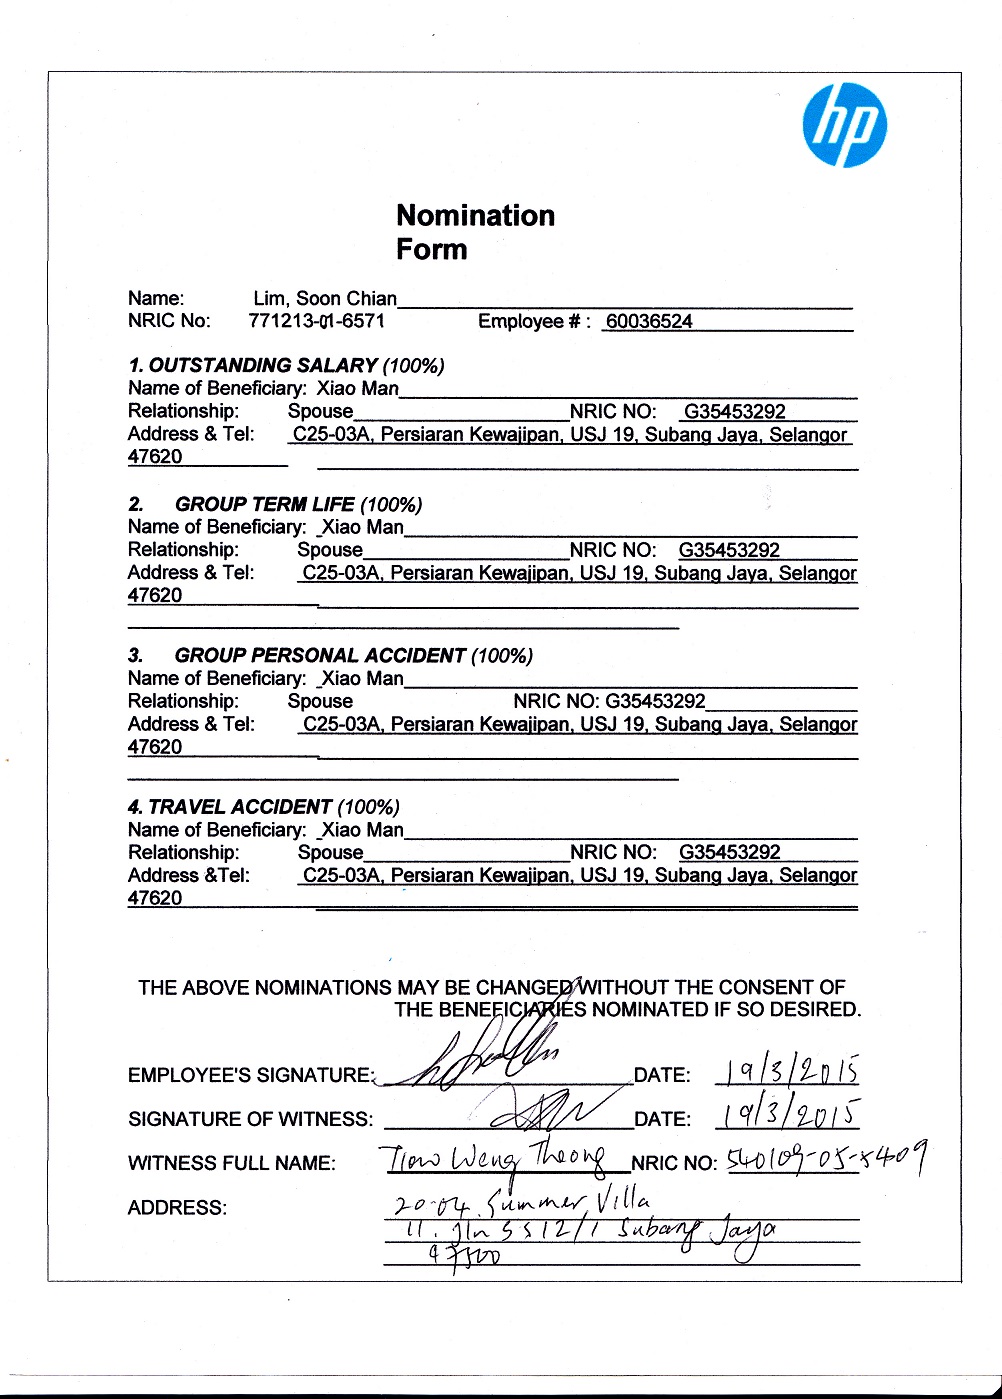 hp
Nomination
Form
Name: Lim, Soon Chian
NRIC No: 771213-01-6571 Employee # : 60036524
1. OUTSTANDING SALARY (100%)
Name of Beneficiary: Xiao Man
Relationship: Spouse NRIC NO: G35453292
Address & Tel: C25-03A, Persiaran Kewajipan, USJ 19, Subang Jaya, Selangor
47620
2. GROUP TERM LIFE (100%)
Name of Beneficiary: Xiao Man
Relationship: Spouse NRIC NO: G35453292
Address & Tel: C25-03A, Persiaran Kewajipan, USJ 19, Subang Jaya, Selangor
47620
3. GROUP PERSONAL ACCIDENT (100%)
Name of Beneficiary: Xiao Man
Relationship: Spouse NRIC NO: G35453292
Address & Tel: C25-03A, Persiaran Kewajipan, USJ 19, Subang Jaya, Selangor
47620
4. TRAVEL ACCIDENT (100%)
Name of Beneficiary: Xiao Man
Relationship: Spouse NRIC NO: G35453292
Address &Tel: C25-03A, Persiaran Kewajipan, USJ 19, Subang Jaya, Selangor
47620
THE ABOVE NOMINATIONS MAY BE CHANGED WITHOUT THE CONSENT OF
THE BENEFICIARIES NOMINATED IF SO DESIRED.
EMPLOYEE'S SIGNATURE: DATE: 19/3/2015
SIGNATURE OF WITNESS: DATE: 19/3/2015
WITNESS FULL NAME: Tiow Weng Theong NRIC NO: 540109-05-5409
ADDRESS: 20-04 Summer Villa
11. Jln SS12/1 Subang Jaya
47500